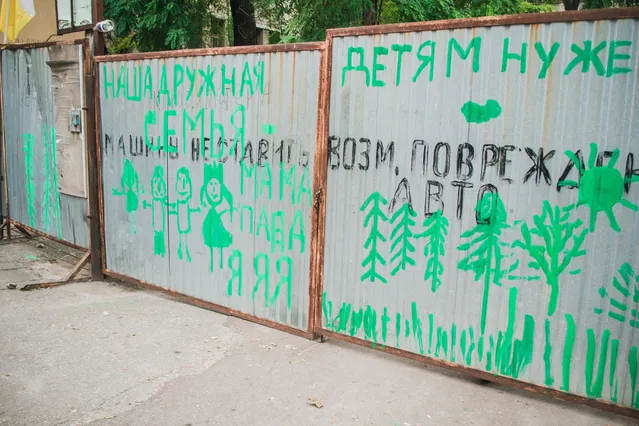 НАША ДРУЖНАЯ
СЕМЬЯ -
МАМА
ПАПА
Я Я Я
МАШИНЫ НЕ СТАВИТЬ
ДЕТЯМ НУЖЕ
ВОЗМ. ПОВРЕЖДЕН
АВТО